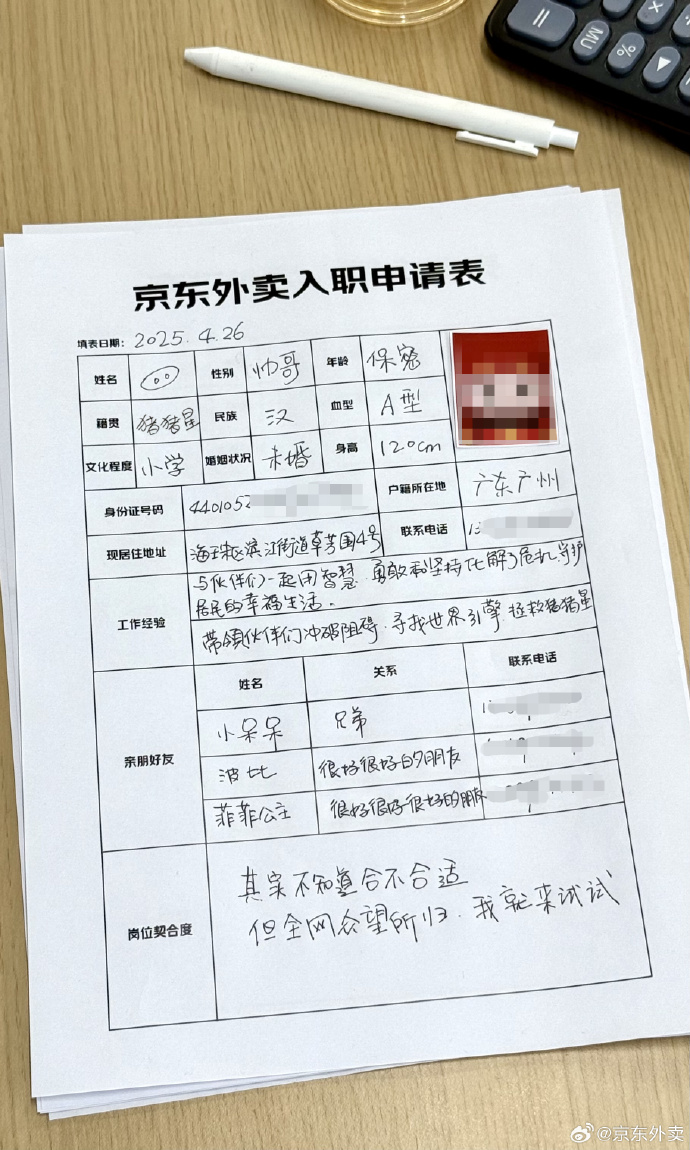 京东外卖入职申请表
填表日期: 2025.4.26
姓名 性别 帅哥 年龄 保密
籍贯 猪猪星 民族 汉 血型 A型
文化程度 小学 婚姻状况 未婚 身高 120cm
身份证号码 4401052 户籍所在地 广东广州
现居住地址 海珠区滨江街道草芳围4号 联系电话 13
工作经验
与伙伴们一起用智慧、勇敢和坚持化解了危机,守护
居民的幸福生活。
带领伙伴们冲破阻碍、寻找世界引擎 拯救猪猪星
亲朋好友
姓名 关系 联系电话
小呆呆 兄弟
波比 很好很好的朋友
菲菲公主 很好很好很好的朋友
岗位契合度
其实不知道合不合适
但全网众望所归、我就来试试
MU
%
@京东外卖